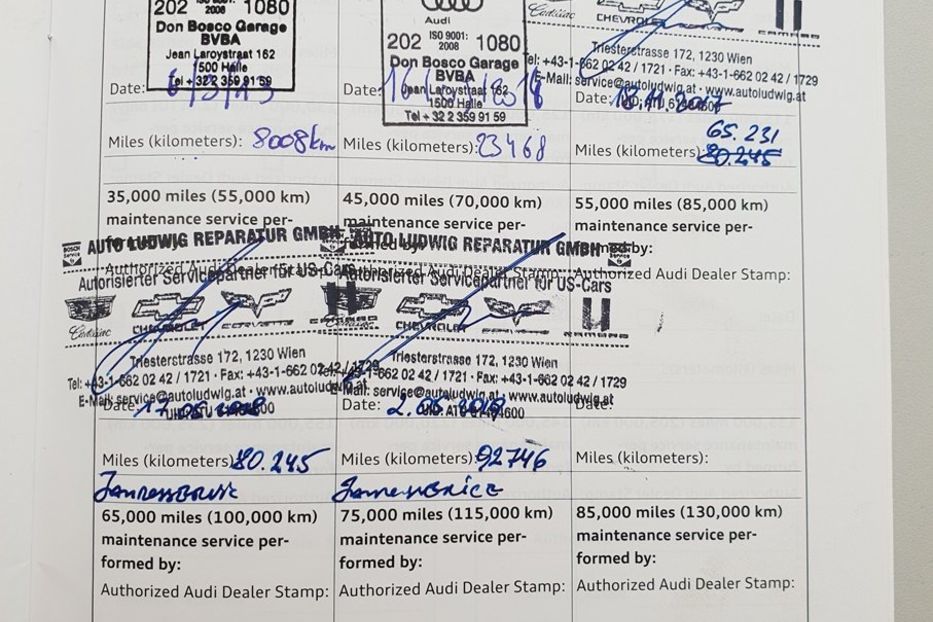 202 ISO 9001: 2008 1080
Don Bosco Garage
BVBA
Jean Laroystraat 162
1500 Halle
Tel + 32 2 359 91 59
Date:
Miles (kilometers): 8008km
Audi
202 ISO 9001: 2008 1080
Don Bosco Garage
BVBA
Jean Laroystraat 162
1500 Halle
Tel + 32 2 359 91 59
Date:
Miles (kilometers): 23468
Cadillac CHEVROLET CAMARO
Triesterstrasse 172, 1230 Wien
Tel: +43-1-662 02 42 / 1721 · Fax: +43-1-662 02 42 / 1729
E-Mail: service@autoludwig.at · www.autoludwig.at
Date:
65.231
Miles (kilometers): 80.245
35,000 miles (55,000 km)
maintenance service per-
formed by:
AUTO LUDWIG REPARATUR GMBH
Authorized Audi Dealer Stamp:
Autorisierter Servicepartner für US-Cars
Cadillac CHEVROLET CORVETTE CAMARO
Triesterstrasse 172, 1230 Wien
Tel: +43-1-662 02 42 / 1721 · Fax: +43-1-662 02 42 / 1729
E-Mail: service@autoludwig.at · www.autoludwig.at
Date:
Miles (kilometers): 80.245
45,000 miles (70,000 km)
maintenance service per-
formed by:
AUTO LUDWIG REPARATUR GMBH
Authorized Audi Dealer Stamp:
Autorisierter Servicepartner für US-Cars
CHEVROLET CORVETTE CAMARO
Triesterstrasse 172, 1230 Wien
Tel: +43-1-662 02 42 / 1721 · Fax: +43-1-662 02 42 / 1729
E-Mail: service@autoludwig.at · www.autoludwig.at
Date:
Miles (kilometers): 92746
55,000 miles (85,000 km)
maintenance service per-
formed by:
Authorized Audi Dealer Stamp:
Date:
Miles (kilometers):
65,000 miles (100,000 km)
maintenance service per-
formed by:
Authorized Audi Dealer Stamp:
75,000 miles (115,000 km)
maintenance service per-
formed by:
Authorized Audi Dealer Stamp:
85,000 miles (130,000 km)
maintenance service per-
formed by:
Authorized Audi Dealer Stamp: